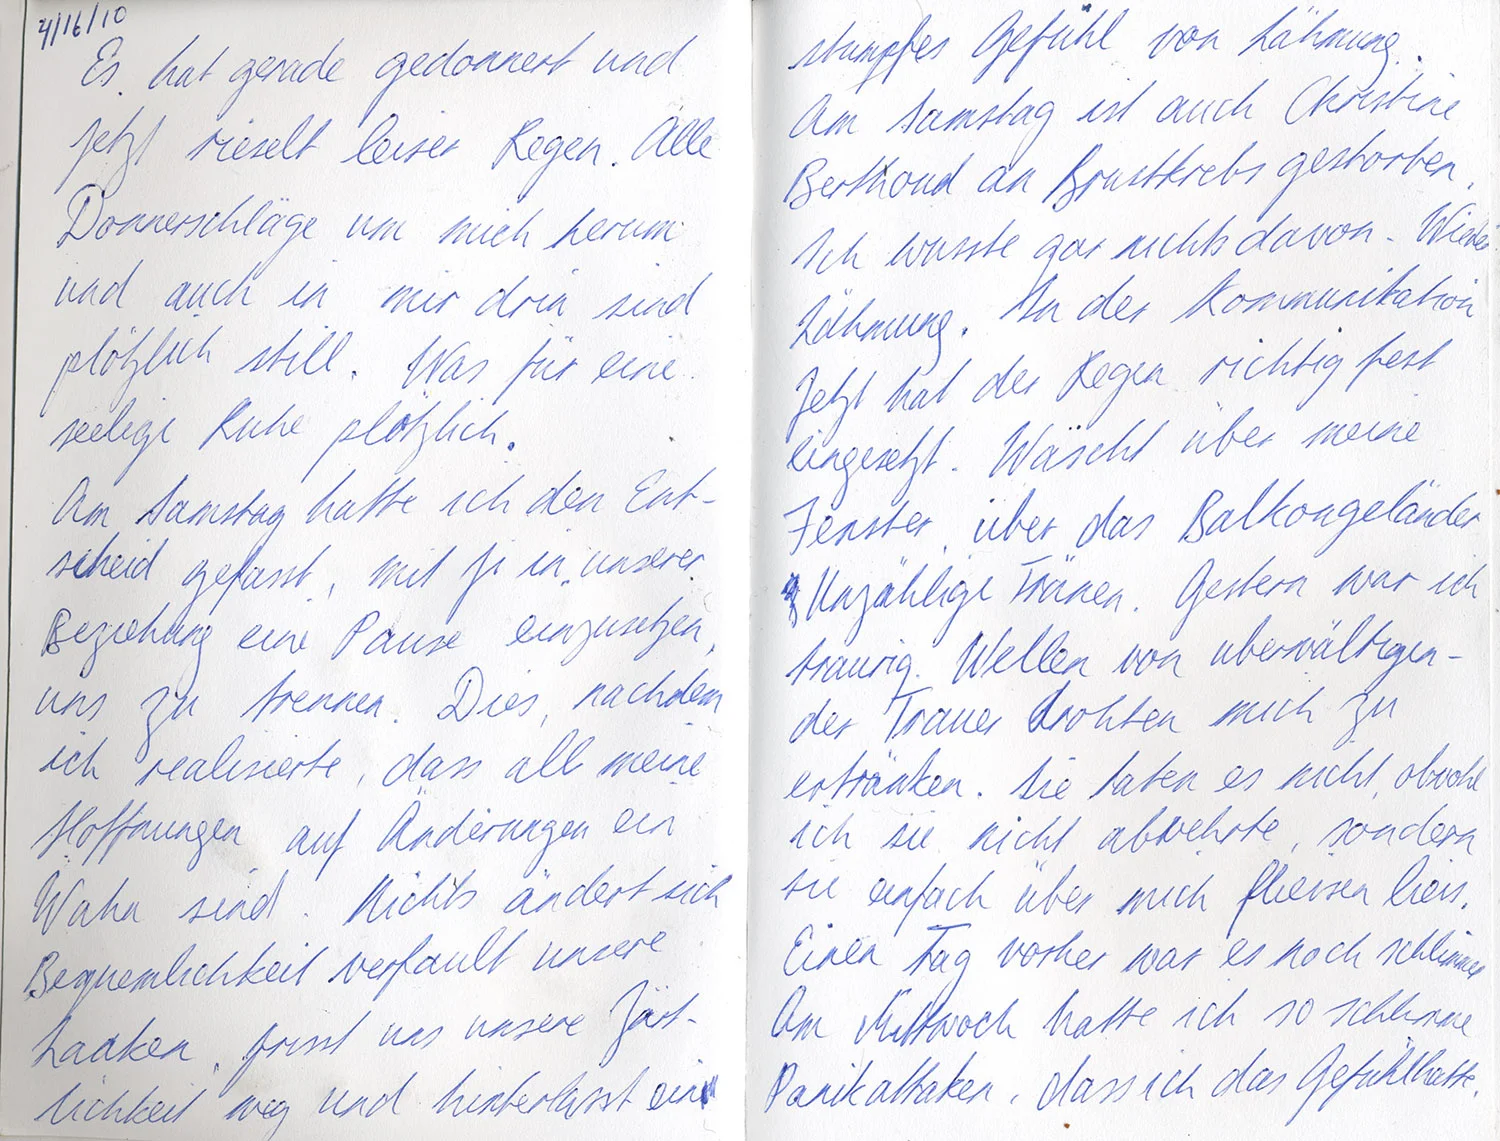 4/16/10
Es hat gerade gedonnert und
jetzt rieselt leiser Regen. Alle
Donnerschläge um mich herum
und auch in mir drin sind
plötzlich still. Was für eine
seelige Ruhe plötzlich.
Am Samstag hatte ich den Ent-
scheid gefasst, mit Ji in unserer
Beziehung eine Pause einzusetzen,
uns zu trennen. Dies, nachdem
ich realisierte, dass all meine
Hoffnungen auf Änderungen ein
Wahn sind. Nichts ändert sich
Bequemlichkeit verfault unsere
frisst uns unsere Zärt-
lichkeit weg und hinterlässt ein
stumpfes Gefühl von Lähmung.
Am Samstag ist auch Christine
Berthoud an Brustkrebs gestorben.
Ich wusste gar nichts davon. Wieder
Lähmung. In der Kommunikation
Jetzt hat der Regen richtig fest
eingesetzt. Wäscht über meine
Fenster, über das Balkongeländer
Unzählige Tränen. Gestern war ich
traurig. Wellen von überwältigen-
der Trauer drohten mich zu
ertränken. Sie taten es nicht, obwohl
ich sie nicht abwehrte, sondern
sie einfach über mich fliessen liess.
Einen Tag vorher war es noch schlimmer
Am Mittwoch hatte ich so schlimme
Panikattaken, dass ich das Gefühl hatte,